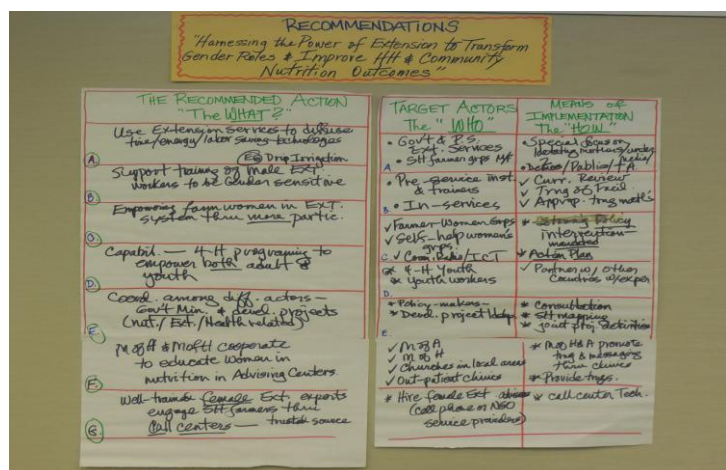 RECOMMENDATIONS
"Harnessing the Power of Extension to Transform
Gender Roles & Improve HH & Community
Nutrition Outcomes"
THE RECOMMENDED ACTION
"The WHAT?"
Use Extension Services to diffuse
time/energy/labor saving technologies
A. EG Drip Irrigation
Support training of male EXT.
workers to be Gender sensitive
B.
Empowering farm women in EXT.
system thru more partic.
C.
Capabil. — 4-H programing to
empower both adult &
youth
D.
Coord. among diff. actors —
Gov't Min. & devel. projects
E. (nat./Ext./Health related)
M of A & M of H cooperate
to educate women in
nutrition in Advising Centers.
F.
Well-trained female Ext. experts
engage SH farmers thru
G. Call centers — trusted source
TARGET ACTORS
The "WHO"
• Gov't & P.S.
Ext. Services
• SH farmer grps
A.
• Pre-service inst.
& trainers
B. • In-services
✓ Farmer Women Grps
✓ Self-help women's
grps.
C. ✓ Com. Radio/ICT
* 4-H Youth
* Youth workers
D.
* Policy-makers
* Devel. project
E.
✓ M of A
✓ M of H
✓ Churches in local areas
✓ Out-patient clinics
* Hire female Ext.
(cell phone or NGO
service providers)
MEANS OF
IMPLEMENTATION
The "HOW"
• Special focus on
mothers/
/Public/
✓ Curr. Review
✓ Trng of Facil.
✓ Approp. trng mat'ls
* Strong Policy
intervention
mandated
* Action Plan
✓ Partner w/ other
countries w/exper
* Consultation
* SH mapping
* joint proj.
* M of H&A promote
trng & messaging
thru clinics
* Provide trngs.
* call center Tech.